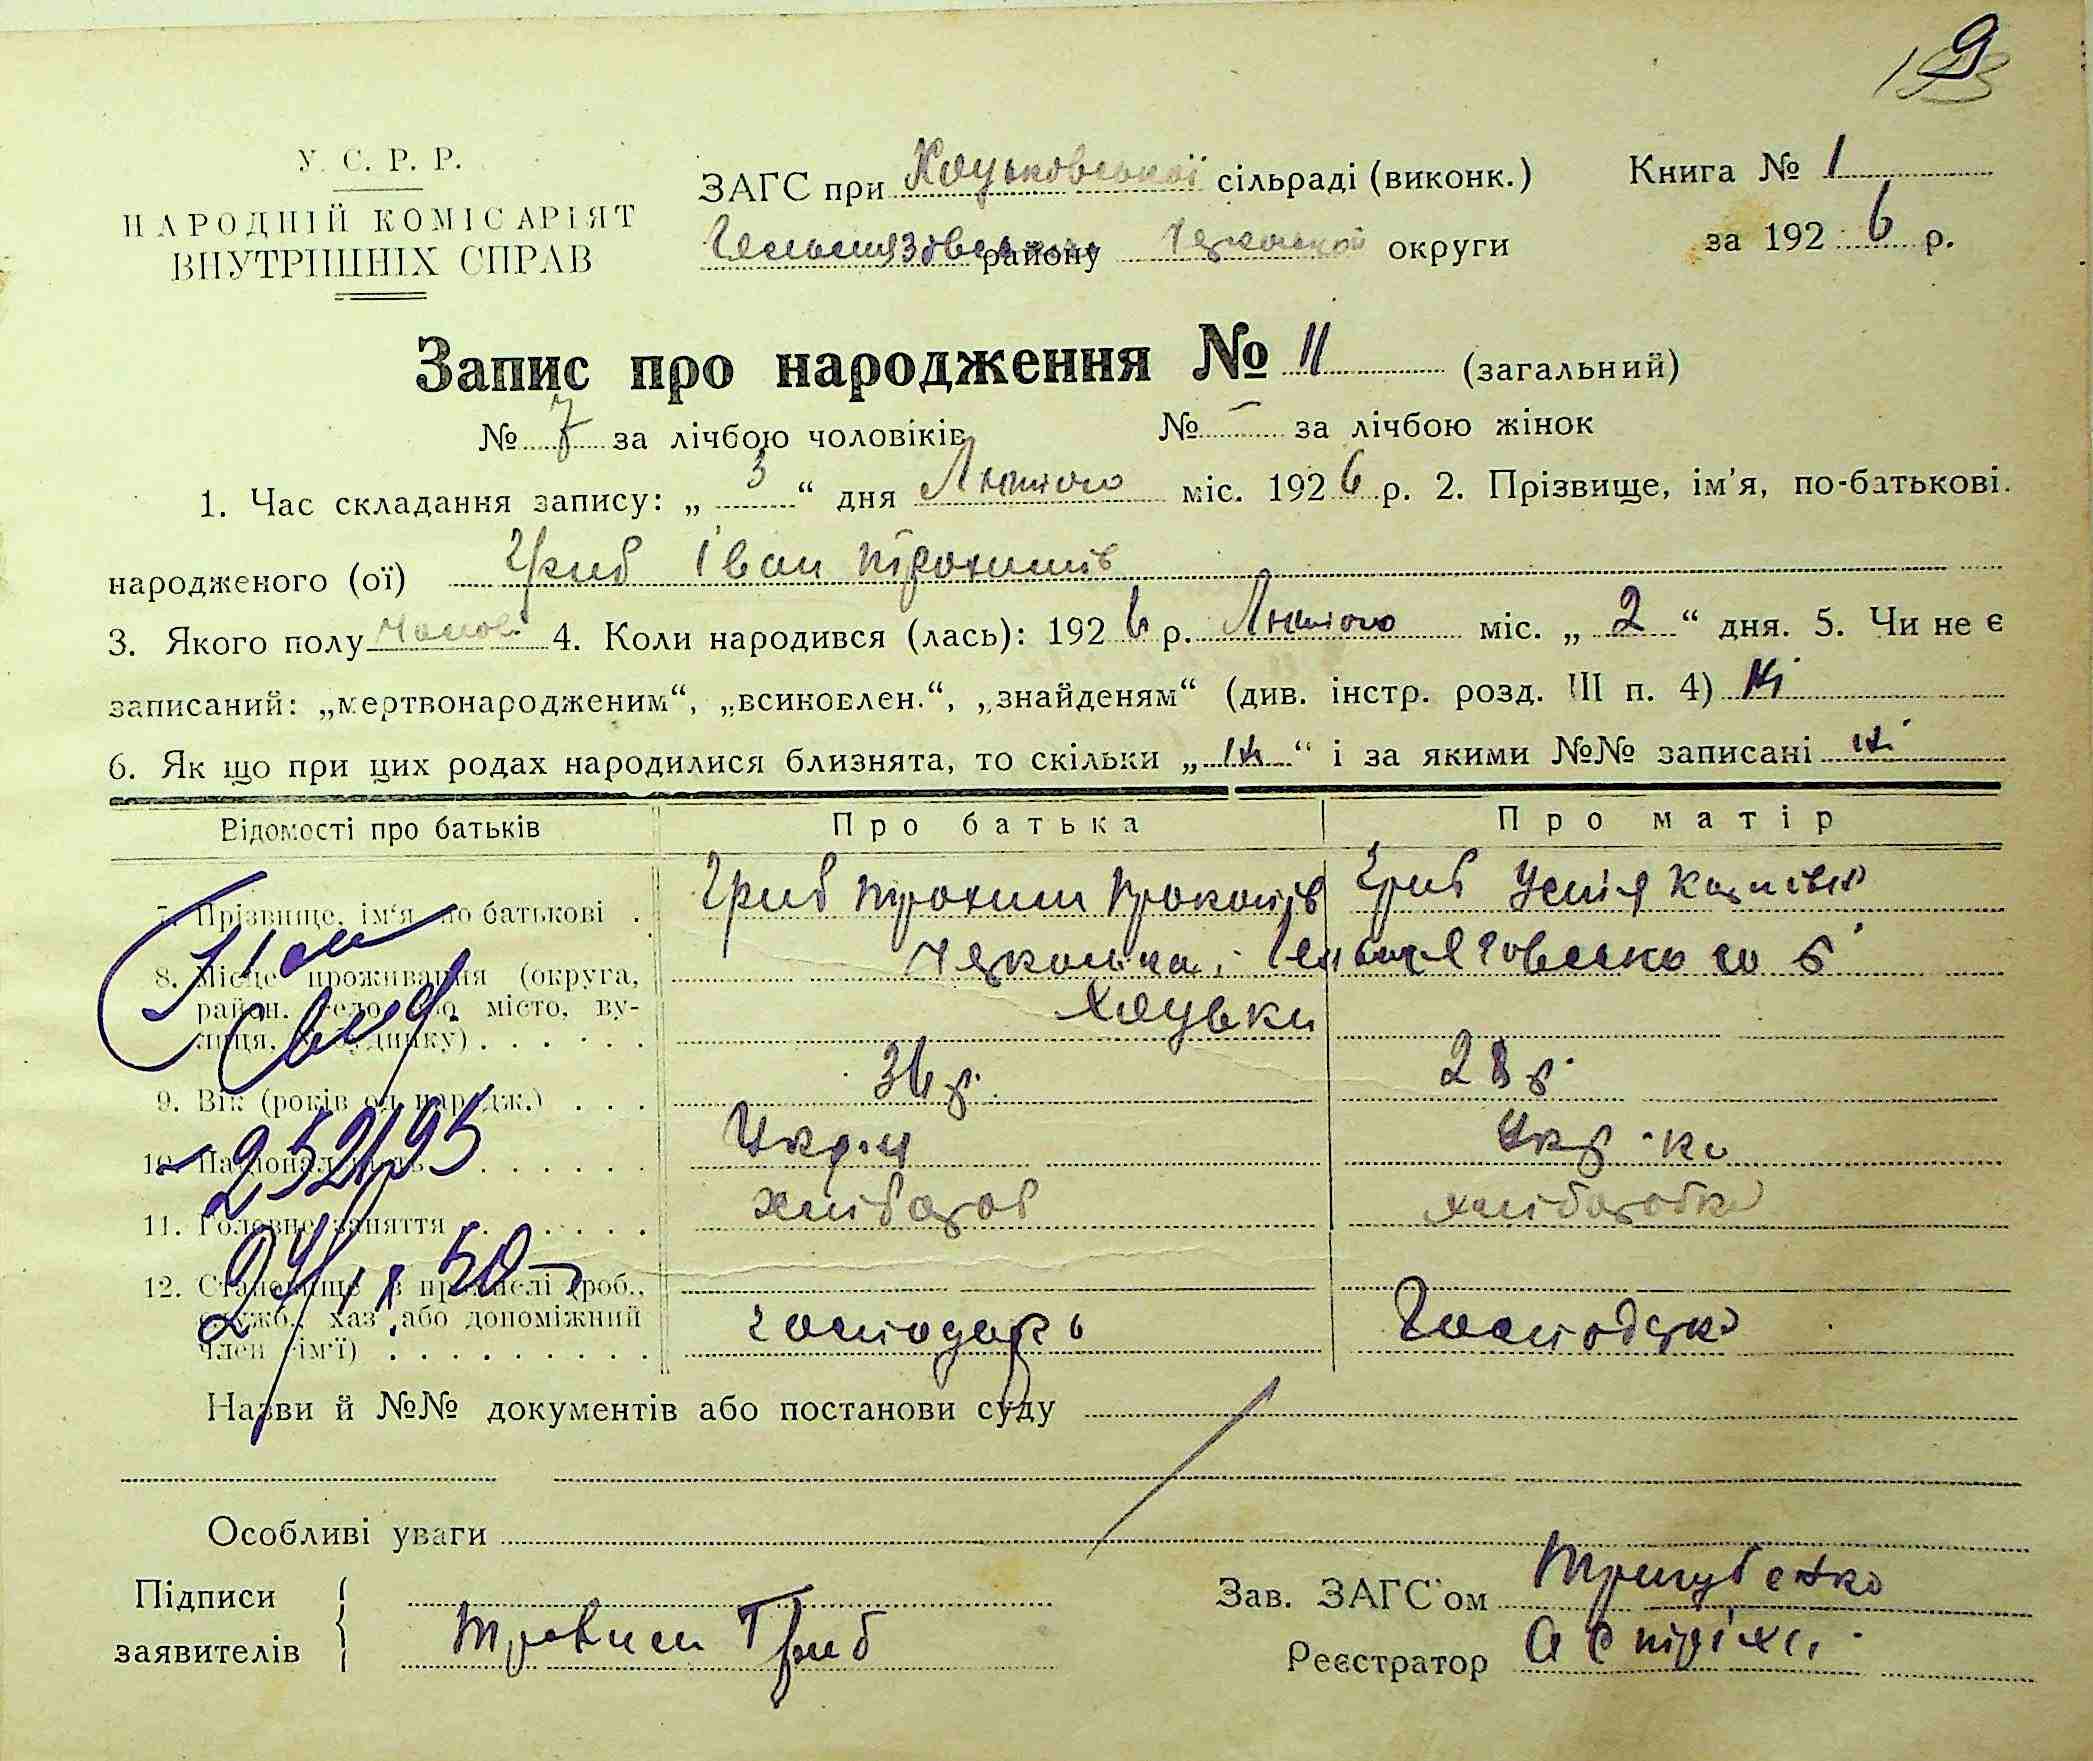 9
У. С. Р. Р.
НАРОДНІЙ КОМІСАРІЯТ
ВНУТРІШНІХ СПРАВ
ЗАГС при Хоцьковської сільраді (виконк.) Книга № 1
Гельмязовськ району Черкаської округи за 1926 р.
Запис про народження № 11 (загальний)
№ 7 за лічбою чоловіків № - за лічбою жінок
1. Час складання запису: „ 3 “ дня Лютого міс. 1926 р. 2. Прізвище, ім'я, по-батькові.
народженого (ої) Гриб Іван Трохимів
3. Якого полу чолов. 4. Коли народився (лась): 1926 р. Лютого міс. „ 2 “ дня. 5. Чи не є
записаний: „мертвонародженим“, „всиновлен.“, „знайденям“ (див. інстр. розд. III п. 4) Ні
6. Як що при цих родах народилися близнята, то скільки „ “ і за якими №№ записані ні
Відомості про батьків Про батька Про матір
7. Прізвище, ім'я по батькові . Гриб Трохим Прокопів Гриб Устія Карпівна
8. Місце проживання (округа, Черкаська, Гельмязовського р
район. село або місто, ву-
Хоцьки
лиця, № будинку) . . . . . .
9. Вік (років од народж.) . . . 36 р. 28 р.
10. Національність . . . . . . Укр-ц Укр-ка
11. Головне заняття . . . . . . хлібороб хліборобка
12. Становище в промислі (роб.,
служб., хаз. або допоміжний
член сім'ї) . . . . . . . . . господарь Господарка
252195
Назви й №№ документів або постанови суду
Особливі уваги
Підписи
заявителів
Трохим Гриб
Зав. ЗАГС'ом Тригубенко
Реєстратор